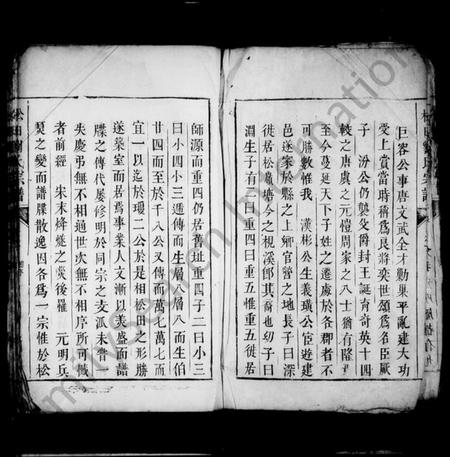 巨容公事唐文武全才勦巢平亂建大功
受上賞當時稱爲良將奕世頌爲名臣厥
子 汾公仍襲父爵封王誕育奇英十四
較之唐虞之元愷周家之八士猶有隆
至今蔓延天下子姓之遷處於各郡者不
可勝數惟我 漢彬公生義璜公宦遊建
邑遂家於縣之上鄉官營之地長子曰深
徙居松塘今之梘溪郎其裔也幼子曰
淵生子有四曰重四曰重五惟重五徙居
師源而重四仍居舊址重四子二曰小三
曰小四小三遞傳而生層六層八而生伯
廿四而至於千八公又傳而萬七萬七而
宜一以迄於瓊二公於是相松田之形勝
遂築室而居焉事業人文漸以美盛而譜
牒之傳代屢修明於同宗之支派未嘗
失慶弔無不相通世次無不相序所可
者前經 宋末烽燧之災後罹 元明兵
燹之變而譜牒散逸因各爲一宗惟於松